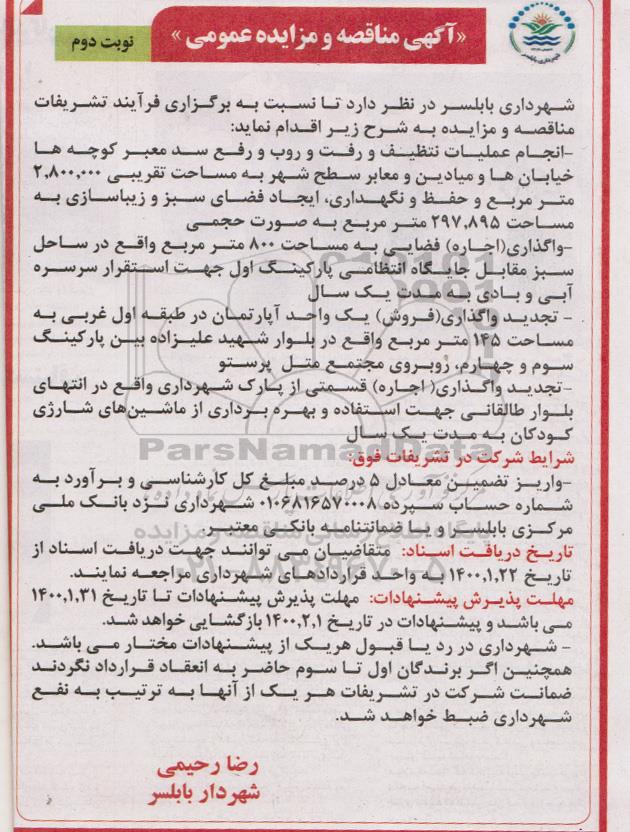 «آگهی مناقصه و مزایده عمومی»
نوبت دوم
شهرداری بابلسر
شهرداری بابلسر در نظر دارد تا نسبت به برگزاری فرآیند تشریفات
مناقصه و مزایده به شرح زیر اقدام نماید:
-انجام عملیات نتظیف و رفت و روب و رفع سد معبر کوچه ها
خیابان ها و میادین و معابر سطح شهر به مساحت تقریبی ۲,۸۰۰,۰۰۰
متر مربع و حفظ و نگهداری، ایجاد فضای سبز و زیباسازی به
مساحت ۲۹۷,۸۹۵ متر مربع به صورت حجمی
-واگذاری(اجاره) فضایی به مساحت ۸۰۰ متر مربع واقع در ساحل
سبز مقابل جایگاه انتظامی پارکینگ اول جهت استقرار سرسره
آبی و بادی به مدت یک سال
- تجدید واگذاری(فروش) یک واحد آپارتمان در طبقه اول غربی به
مساحت ۱۴۵ متر مربع واقع در بلوار شهید علیزاده بین پارکینگ
سوم و چهارم، روبروی مجتمع متل پرستو
-تجدید واگذاری( اجاره) قسمتی از پارک شهرداری واقع در انتهای
بلوار طالقانی جهت استفاده و بهره برداری از ماشین‌های شارژی
کودکان به مدت یک سال
ParsNamadData
شرایط شرکت در تشریفات فوق:
-واریز تضمین معادل ۵ درصد مبلغ کل کارشناسی و برآورد به
شماره حساب سپرده ۰۱۰۶۸۱۶۵۷۰۰۰۸ شهرداری نزد بانک ملی
مرکزی بابلسر و یا ضمانتنامه بانکی معتبر
پایگاه اطلاع رسانی مناقصه و مزایده
تاریخ دریافت اسناد: متقاضیان می توانند جهت دریافت اسناد از
تاریخ ۱۴۰۰,۱,۲۲ به واحد قراردادهای شهرداری مراجعه نمایند.
مهلت پذیرش پیشنهادات: مهلت پذیرش پیشنهادات تا تاریخ ۱۴۰۰,۱,۳۱
می باشد و پیشنهادات در تاریخ ۱۴۰۰,۲,۱ بازگشایی خواهد شد.
- شهرداری در رد یا قبول هریک از پیشنهادات مختار می باشد.
همچنین اگر برندگان اول تا سوم حاضر به انعقاد قرارداد نگردند
ضمانت شرکت در تشریفات هر یک از آنها به ترتیب به نفع
شهرداری ضبط خواهد شد.
رضا رحیمی
شهردار بابلسر